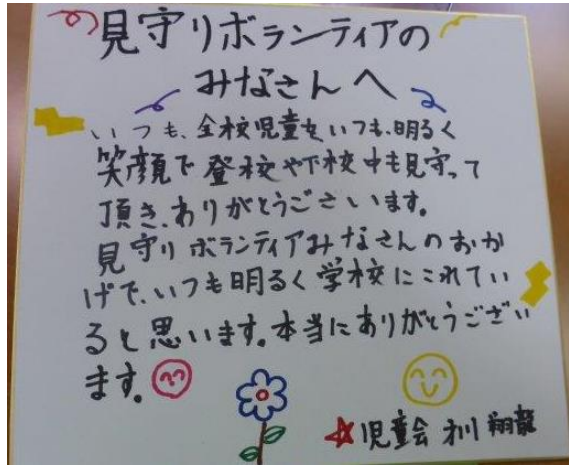 見守りボランティアの
みなさんへ
いつも、全校児童をいつも、明るく
笑顔で登校や下校中も見守って
頂き、ありがとうございます。
見守りボランティアみなさんのおか
げで、いつも明るく学校にこれてい
ると思います。本当にありがとうござい
ます。
児童会 翔龍